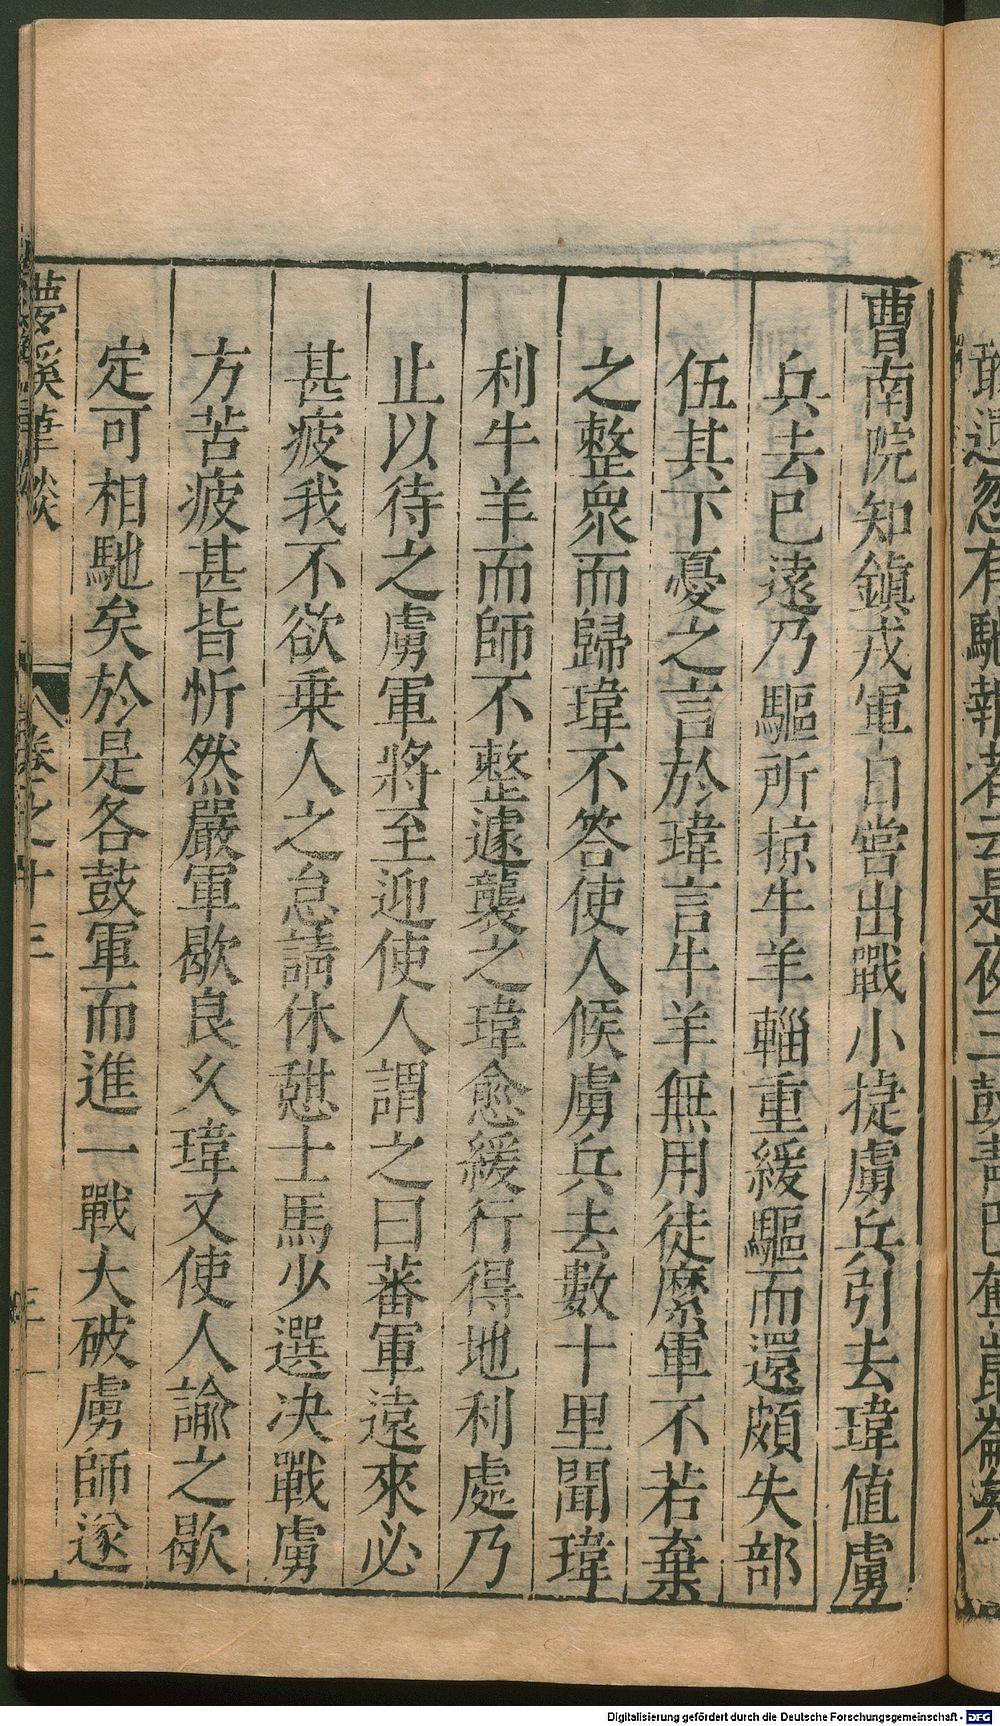 敢遺忽有馳報者云是夜三鼓青已奪崑崙矣
曹南院知鎮戎軍日嘗出戰小捷虜兵引去瑋值虜
兵去已遠乃驅所掠牛羊輜重緩驅而還頗失部
伍其下憂之言於瑋言牛羊無用徒縻軍不若棄
之整衆而歸瑋不答使人候虜兵去數十里聞瑋
利牛羊而師不整遽襲之瑋愈緩行得地利處乃
止以待之虜軍將至迎使人謂之曰蕃軍遠來必
甚疲我不欲乗人之怠請休憇士馬少選決戰虜
方苦疲甚皆忻然嚴軍歇良久瑋又使人諭之歇
定可相馳矣於是各鼓軍而進一戰大破虜師遂
夢溪筆談 卷之十三
Digitalisierung gefördert durch die Deutsche Forschungsgemeinschaft - DFG